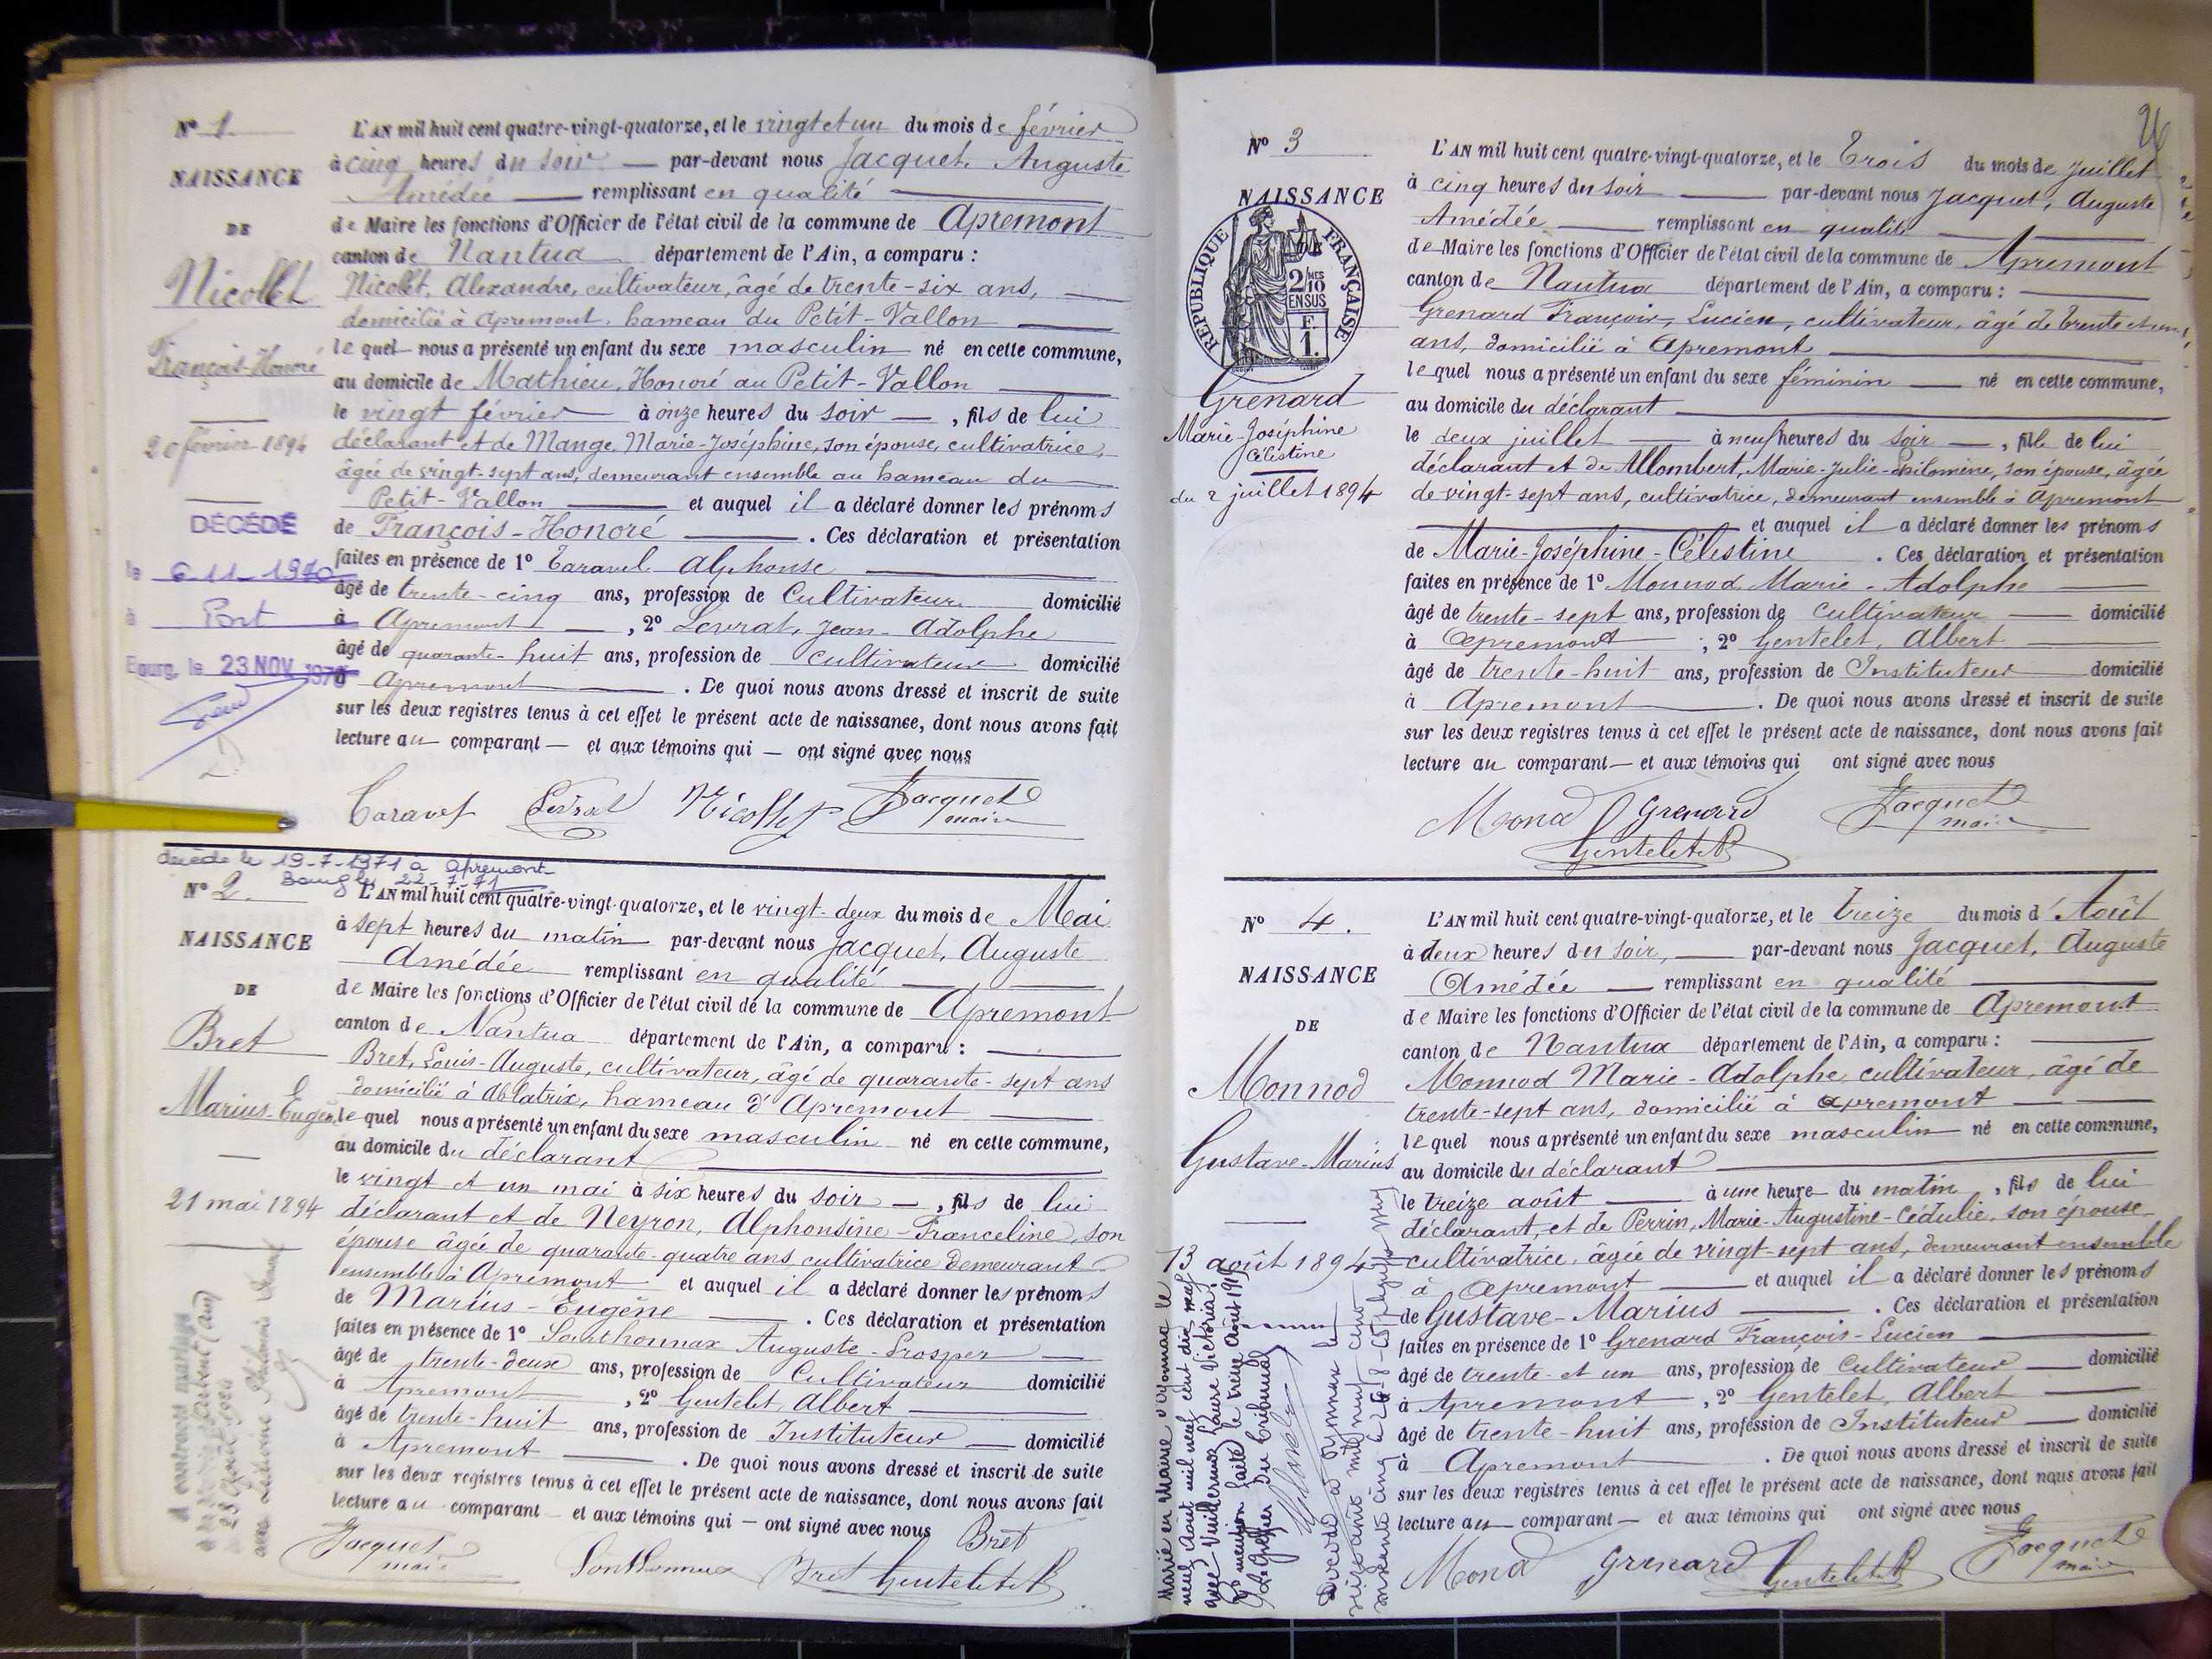 Nº 1
NAISSANCE
DE
Nicollet
François-Honoré
20 février 1894
DÉCÉDÉ
le 6 11 1970
à Port
Bourg, le 23 NOV. 1970
L'AN mil huit cent quatre-vingt-quatorze, et le vingt et un du mois de février
à cinq heures du soir — par-devant nous Jacquet, Auguste
Amédée — remplissant en qualité
de Maire les fonctions d'Officier de l'état civil de la commune de Apremont
canton de Nantua département de l'Ain, a comparu :
Nicollet, Alexandre, cultivateur, âgé de trente-six ans,
domicilié à Apremont, hameau du Petit-Vallon
lequel nous a présenté un enfant du sexe masculin né en cette commune,
au domicile de Mathieu, Honoré au Petit-Vallon
le vingt février à onze heures du soir —, fils de lui
déclarant et de Mange, Marie-Joséphine, son épouse, cultivatrice,
âgée de vingt-sept ans, demeurant ensemble au hameau du
Petit-Vallon — et auquel il a déclaré donner les prénoms
de François-Honoré — . Ces déclaration et présentation
faites en présence de 1º Taravel Alphonse
âgé de trente-cinq ans, profession de Cultivateur domicilié
à Apremont —, 2º Levrat, Jean-Adolphe
âgé de quarante-huit ans, profession de cultivateur domicilié
à Apremont — . De quoi nous avons dressé et inscrit de suite
sur les deux registres tenus à cet effet le présent acte de naissance, dont nous avons fait
lecture au comparant — et aux témoins qui — ont signé avec nous
Taravel Levrat Nicollet Jacquet
maire
décédé le 19-7-1971 à Apremont
Bourg le 22-7-71
Nº 2.
NAISSANCE
DE
Bret
Marius-Eugène
21 mai 1894
L'AN mil huit cent quatre-vingt-quatorze, et le vingt-deux du mois de Mai
à sept heures du matin par-devant nous Jacquet, Auguste
Amédée remplissant en qualité
de Maire les fonctions d'Officier de l'état civil de la commune de Apremont
canton de Nantua département de l'Ain, a comparu :
Bret, Louis-Auguste, cultivateur, âgé de quarante-sept ans
domicilié à Ablatrix, hameau d'Apremont
lequel nous a présenté un enfant du sexe masculin né en cette commune,
au domicile du déclarant
le vingt et un mai à six heures du soir —, fils de lui
déclarant et de Neyron, Alphonsine-Franceline, son
épouse âgée de quarante-quatre ans, cultivatrice demeurant
ensemble à Apremont et auquel il a déclaré donner les prénoms
de Marius-Eugène — . Ces déclaration et présentation
faites en présence de 1º Sonthonnax Auguste-Prosper
âgé de trente-deux ans, profession de Cultivateur domicilié
à Apremont, 2º Gentelet, Albert
âgé de trente-huit ans, profession de Instituteur — domicilié
à Apremont — . De quoi nous avons dressé et inscrit de suite
sur les deux registres tenus à cet effet le présent acte de naissance, dont nous avons fait
lecture au comparant et aux témoins qui — ont signé avec nous Bret
Jacquet
maire
Sonthonnax Bret Gentelet A
A contracté mariage
Nº 3
NAISSANCE
DE
RÉPUBLIQUE FRANÇAISE
2/10 MES
EN SUS
F.
1.
Grenard
Marie-Joséphine
Célestine
du 2 juillet 1894
26
L'AN mil huit cent quatre-vingt-quatorze, et le Trois du mois de Juillet
à cinq heures du soir — par-devant nous Jacquet, Auguste
Amédée — remplissant en qualité
de Maire les fonctions d'Officier de l'état civil de la commune de Apremont
canton de Nantua département de l'Ain, a comparu :
Grenard François, Lucien, cultivateur, âgé de trente et un
ans, domicilié à Apremont
lequel nous a présenté un enfant du sexe féminin — né en cette commune,
au domicile du déclarant
le deux juillet — à neuf heures du soir —, fille de lui
déclarant et de Allombert, Marie-Julie-Philomène, son épouse, âgée
de vingt-sept ans, cultivatrice, demeurant ensemble à Apremont
et auquel il a déclaré donner les prénoms
de Marie-Joséphine-Célestine . Ces déclaration et présentation
faites en présence de 1º Monnod Marie-Adolphe
âgé de trente-sept ans, profession de cultivateur — domicilié
à Apremont ; 2º Gentelet, Albert
âgé de trente-huit ans, profession de Instituteur domicilié
à Apremont — . De quoi nous avons dressé et inscrit de suite
sur les deux registres tenus à cet effet le présent acte de naissance, dont nous avons fait
lecture au comparant — et aux témoins qui ont signé avec nous
Monod Grenard Jacquet
maire
Gentelet A
Nº 4.
NAISSANCE
DE
Monnod
Gustave-Marius
13 août 1894
L'AN mil huit cent quatre-vingt-quatorze, et le treize du mois d'Août
à deux heures du soir, — par-devant nous Jacquet, Auguste
Amédée — remplissant en qualité
de Maire les fonctions d'Officier de l'état civil de la commune de Apremont
canton de Nantua département de l'Ain, a comparu :
Monnod Marie-Adolphe, cultivateur, âgé de
trente-sept ans, domicilié à Apremont
lequel nous a présenté un enfant du sexe masculin né en cette commune,
au domicile du déclarant
le treize août — à une heure du matin, fils de lui
déclarant, et de Perrin, Marie-Augustine-Cédulie, son épouse
cultivatrice, âgée de vingt-sept ans, demeurant ensemble
à Apremont — et auquel il a déclaré donner les prénoms
de Gustave-Marius — . Ces déclaration et présentation
faites en présence de 1º Grenard François-Lucien
âgé de trente et un ans, profession de Cultivateur — domicilié
à Apremont, 2º Gentelet, Albert
âgé de trente-huit ans, profession de Instituteur — domicilié
à Apremont . De quoi nous avons dressé et inscrit de suite
sur les deux registres tenus à cet effet le présent acte de naissance, dont nous avons fait
lecture au comparant — et aux témoins qui ont signé avec nous
Monod Grenard Gentelet A Jacquet
maire
Marié en Mairie d'Oyonnax le
neuf Août mil neuf cent dix neuf
avec Vuillermoz Laure Victoria
mention faite le treize Août 1919
Le Greffier du Tribunal
Décédé à Oyonnax le